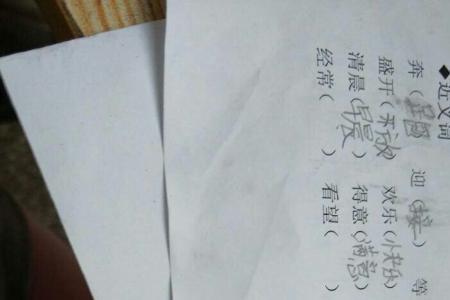 ◆近义词
奔（ ） 迎（接） 等
盛开（开放） 欢乐（快乐）
清晨（早晨） 得意（满意）
经常（ ） 看望（ ）